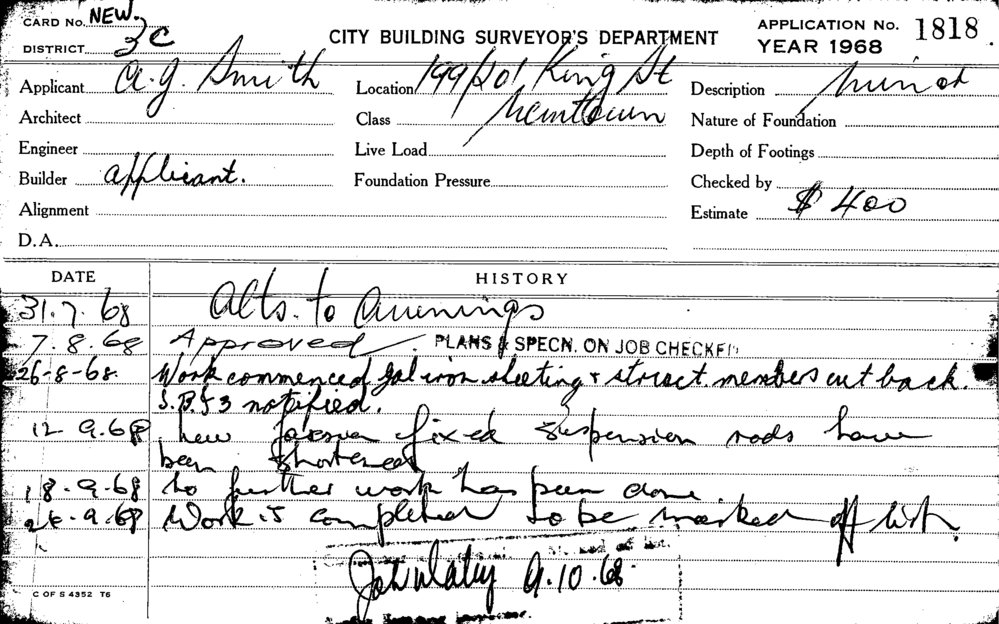 CARD No. NEW.
DISTRICT 3C
CITY BUILDING SURVEYOR'S DEPARTMENT
APPLICATION No. 1818
YEAR 1968
Applicant A.G. Smith
Location 199/201 King St
Description Minor
Architect
Class Newtown
Nature of Foundation
Engineer
Live Load
Depth of Footings
Builder applicant.
Foundation Pressure
Checked by
Alignment
Estimate $ 400
D.A.
DATE HISTORY
31.7.68 Alts. to Awnings
7.8.68 Approved. PLANS & SPECN. ON JOB CHECKED
26-8-68. Work commenced gal iron sheeting & struct. members cut back.
S.B.I 3 notified.
12 9.68 New fascia fixed suspension rods have
been shortened
18.9.68 No further work has been done
26.9.68 Work is completed to be marked off list.
9.10.68
C OF S 4352 T6